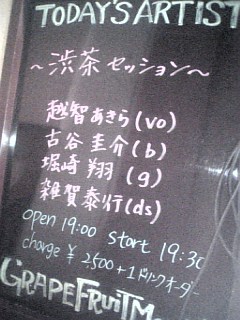 TODAY'S ARTIST
～渋茶セッション～
越智あきら(vo)
古谷圭介(b)
堀崎 翔 (g)
雑賀泰行(ds)
open 19:00 start 19:30
charge ¥2,500+1ドリンクオーダー
GRAPEFRUITM